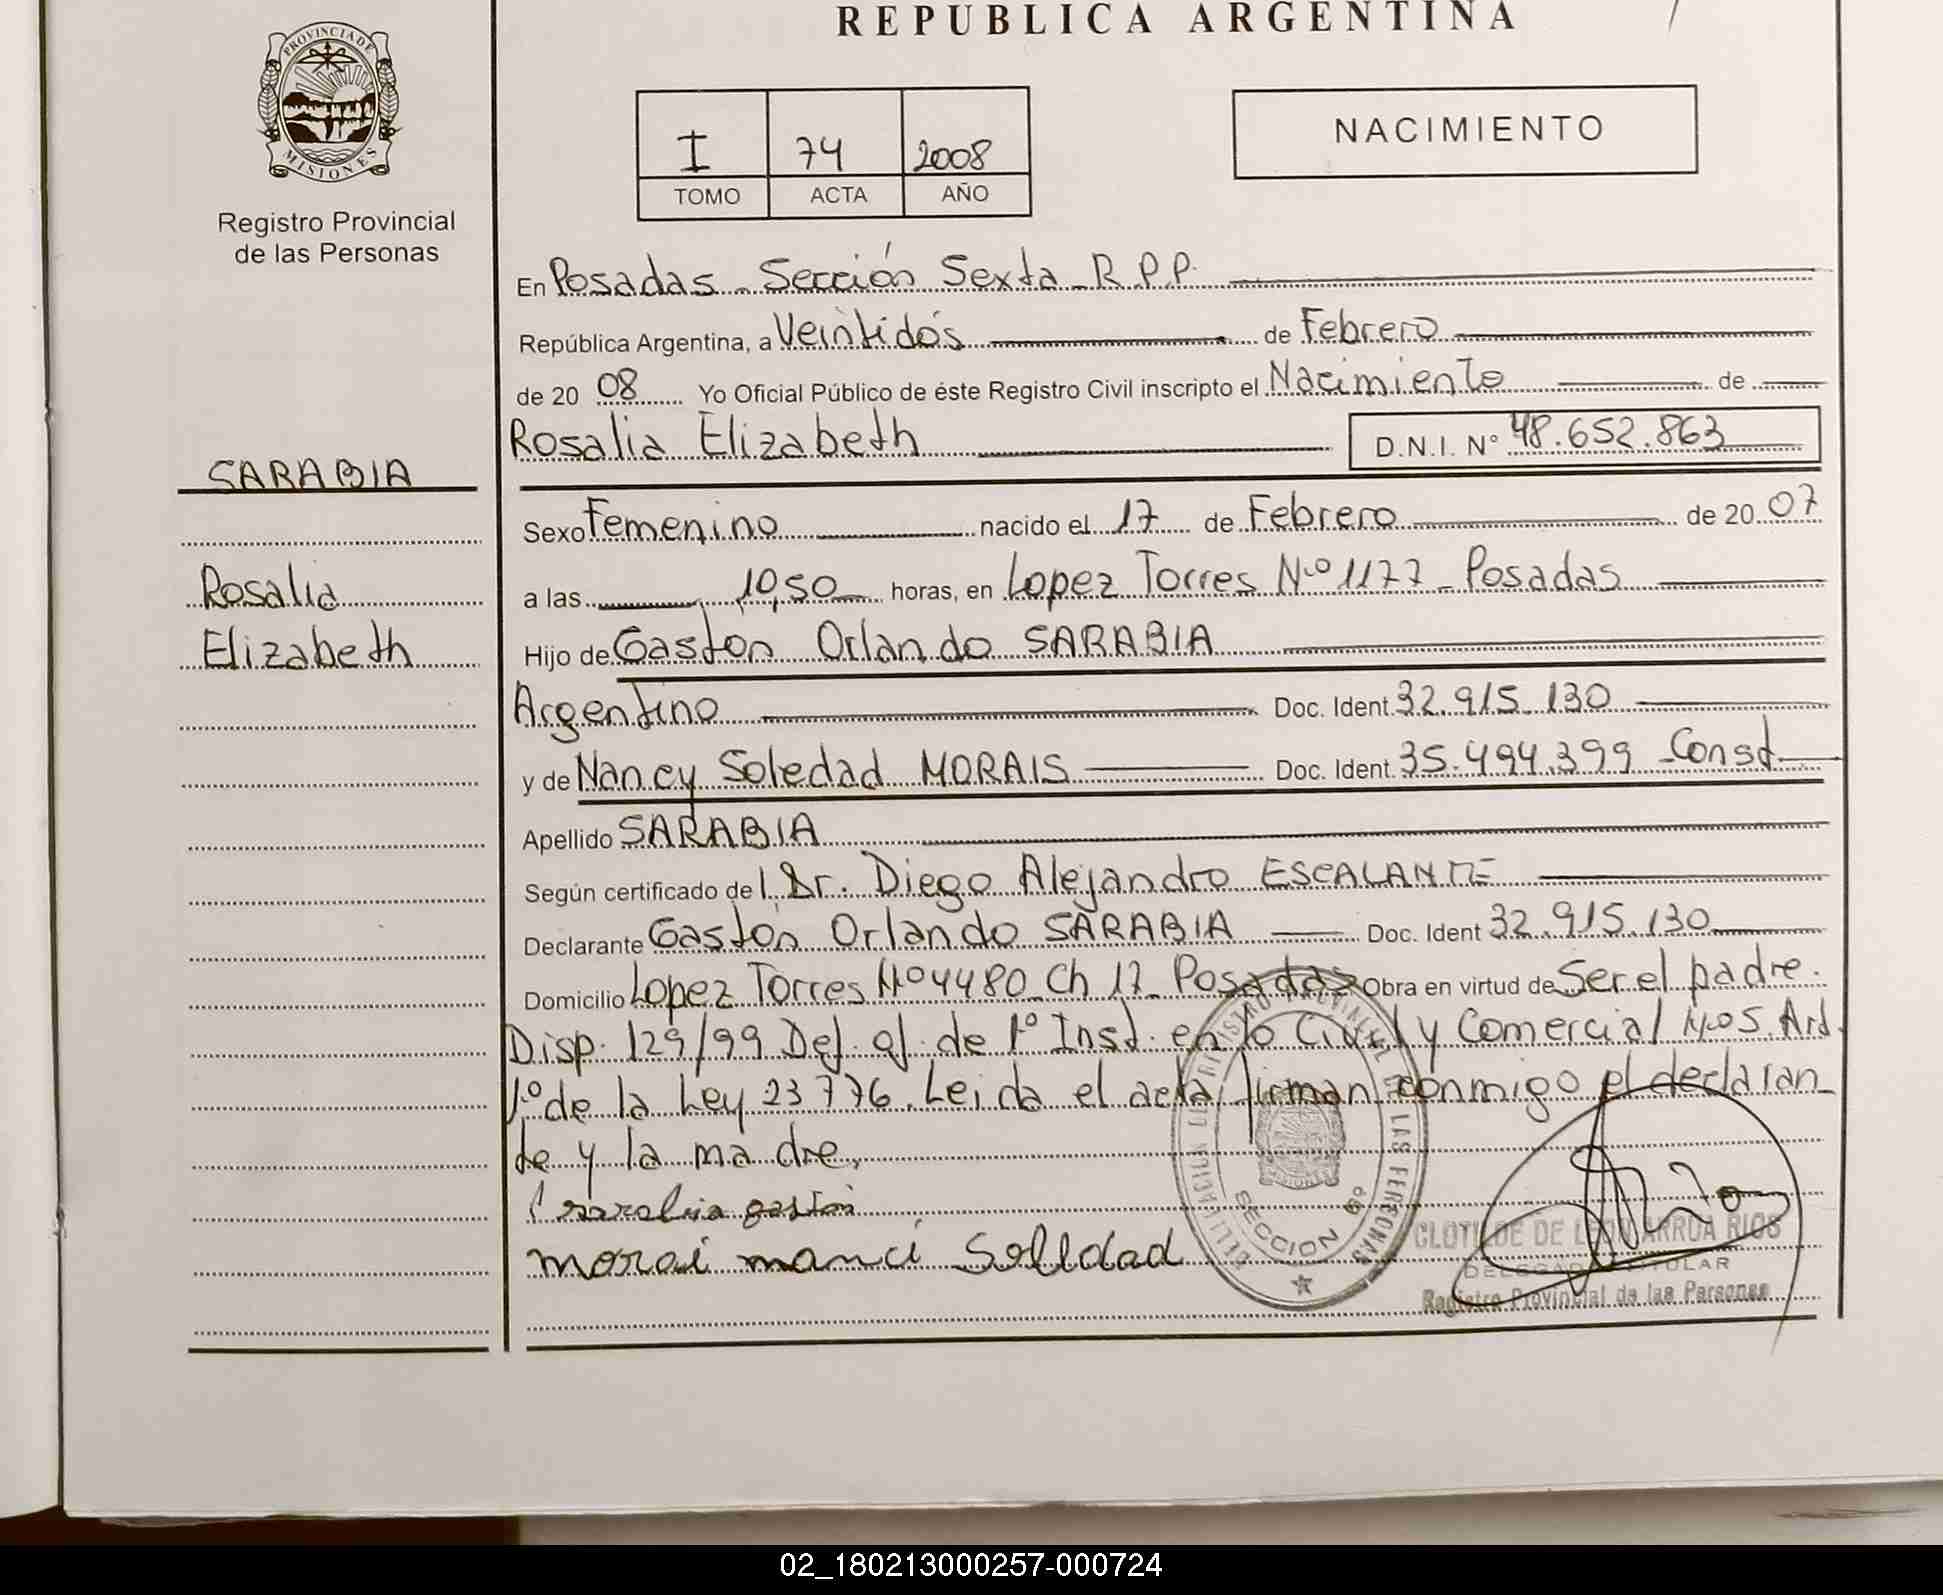 REPUBLICA ARGENTINA
PROVINCIA DE
MISIONES
Registro Provincial
de las Personas
I 74 2008
TOMO ACTA AÑO
NACIMIENTO
En Posadas - Sección Sexta - R.P.P.
República Argentina, a Veintidós de Febrero
de 20 08 Yo Oficial Público de éste Registro Civil inscripto el Nacimiento de
Rosalia Elizabeth D.N.I. N° 48.652.863
SARABIA
Rosalia
Elizabeth
Sexo Femenino nacido el 17 de Febrero de 20 07
a las 10,50 horas, en Lopez Torres N° 1177 - Posadas
Hijo de Gastón Orlando SARABIA
Argentino Doc. Ident. 32.915.130
y de Nancy Soledad MORAIS Doc. Ident. 35.494.399 - Const.
Apellido SARABIA
Según certificado de l Dr. Diego Alejandro ESCALANTE
Declarante Gastón Orlando SARABIA Doc. Ident 32.915.130
Domicilio Lopez Torres N° 4480 Ch 17 - Posadas Obra en virtud de Ser el padre.
Disp. 129/99 Def. of. de 1° Inst. en lo Civil y Comercial N° 5. Art
1° de la Ley 23776. Leida el acta, firman conmigo el declaran-
te y la madre.
sarabia gaston
morai manci Soledad
SECCION 6°
CLOTILDE DE LEON ARRUA RIOS
DELEGADA TITULAR
Registro Provincial de las Personas
02_180213000257-000724